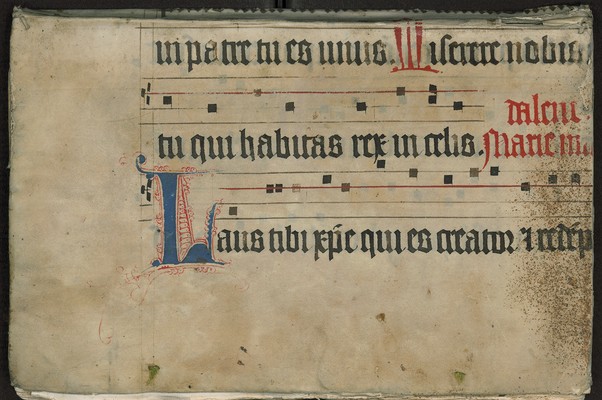 in patre tu es unus. Miserere nobis
dalene.
tu qui habitas rex in celis. Marie ma
Laus tibi xp̄e qui es creator ⁊ redēp